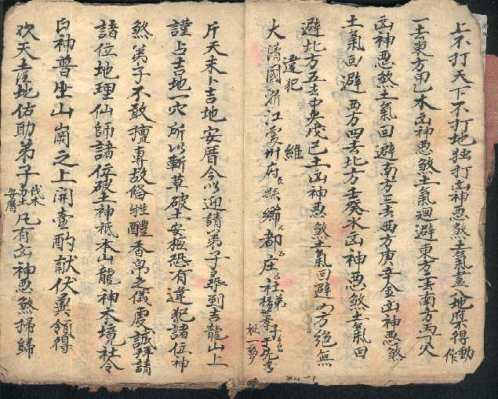 上不打天下不打地独打凶神恶煞土氣立一地不得動作
一去東方甲乙木凶神恶煞土氣迴避東方二去南方丙丁火
凶神恶煞土氣回避南方三去西方庚辛金凶神恶煞
土氣回避西方四去北方壬癸水凶神恶煞土氣回
避北方五去中央戊己土凶神恶煞回避方絕無
違犯 維
大清國浙江處州府縣鄉都庄社
斤天未卜吉地安厝今以迎請弟子到吉龍山上
謹占吉地一穴所以斬草破土安恐有違犯諸位神
煞弟子不敢擅專故俻牲醴香帛之儀虔誠拜請
諸位地理仙師諸位破土神祇本山龍神本境社令
臼神普生山崗之上開壺酌献伏冀領得
次天土地佑助弟子 伐木 破土 安厝 凡有凶神恶煞掃歸